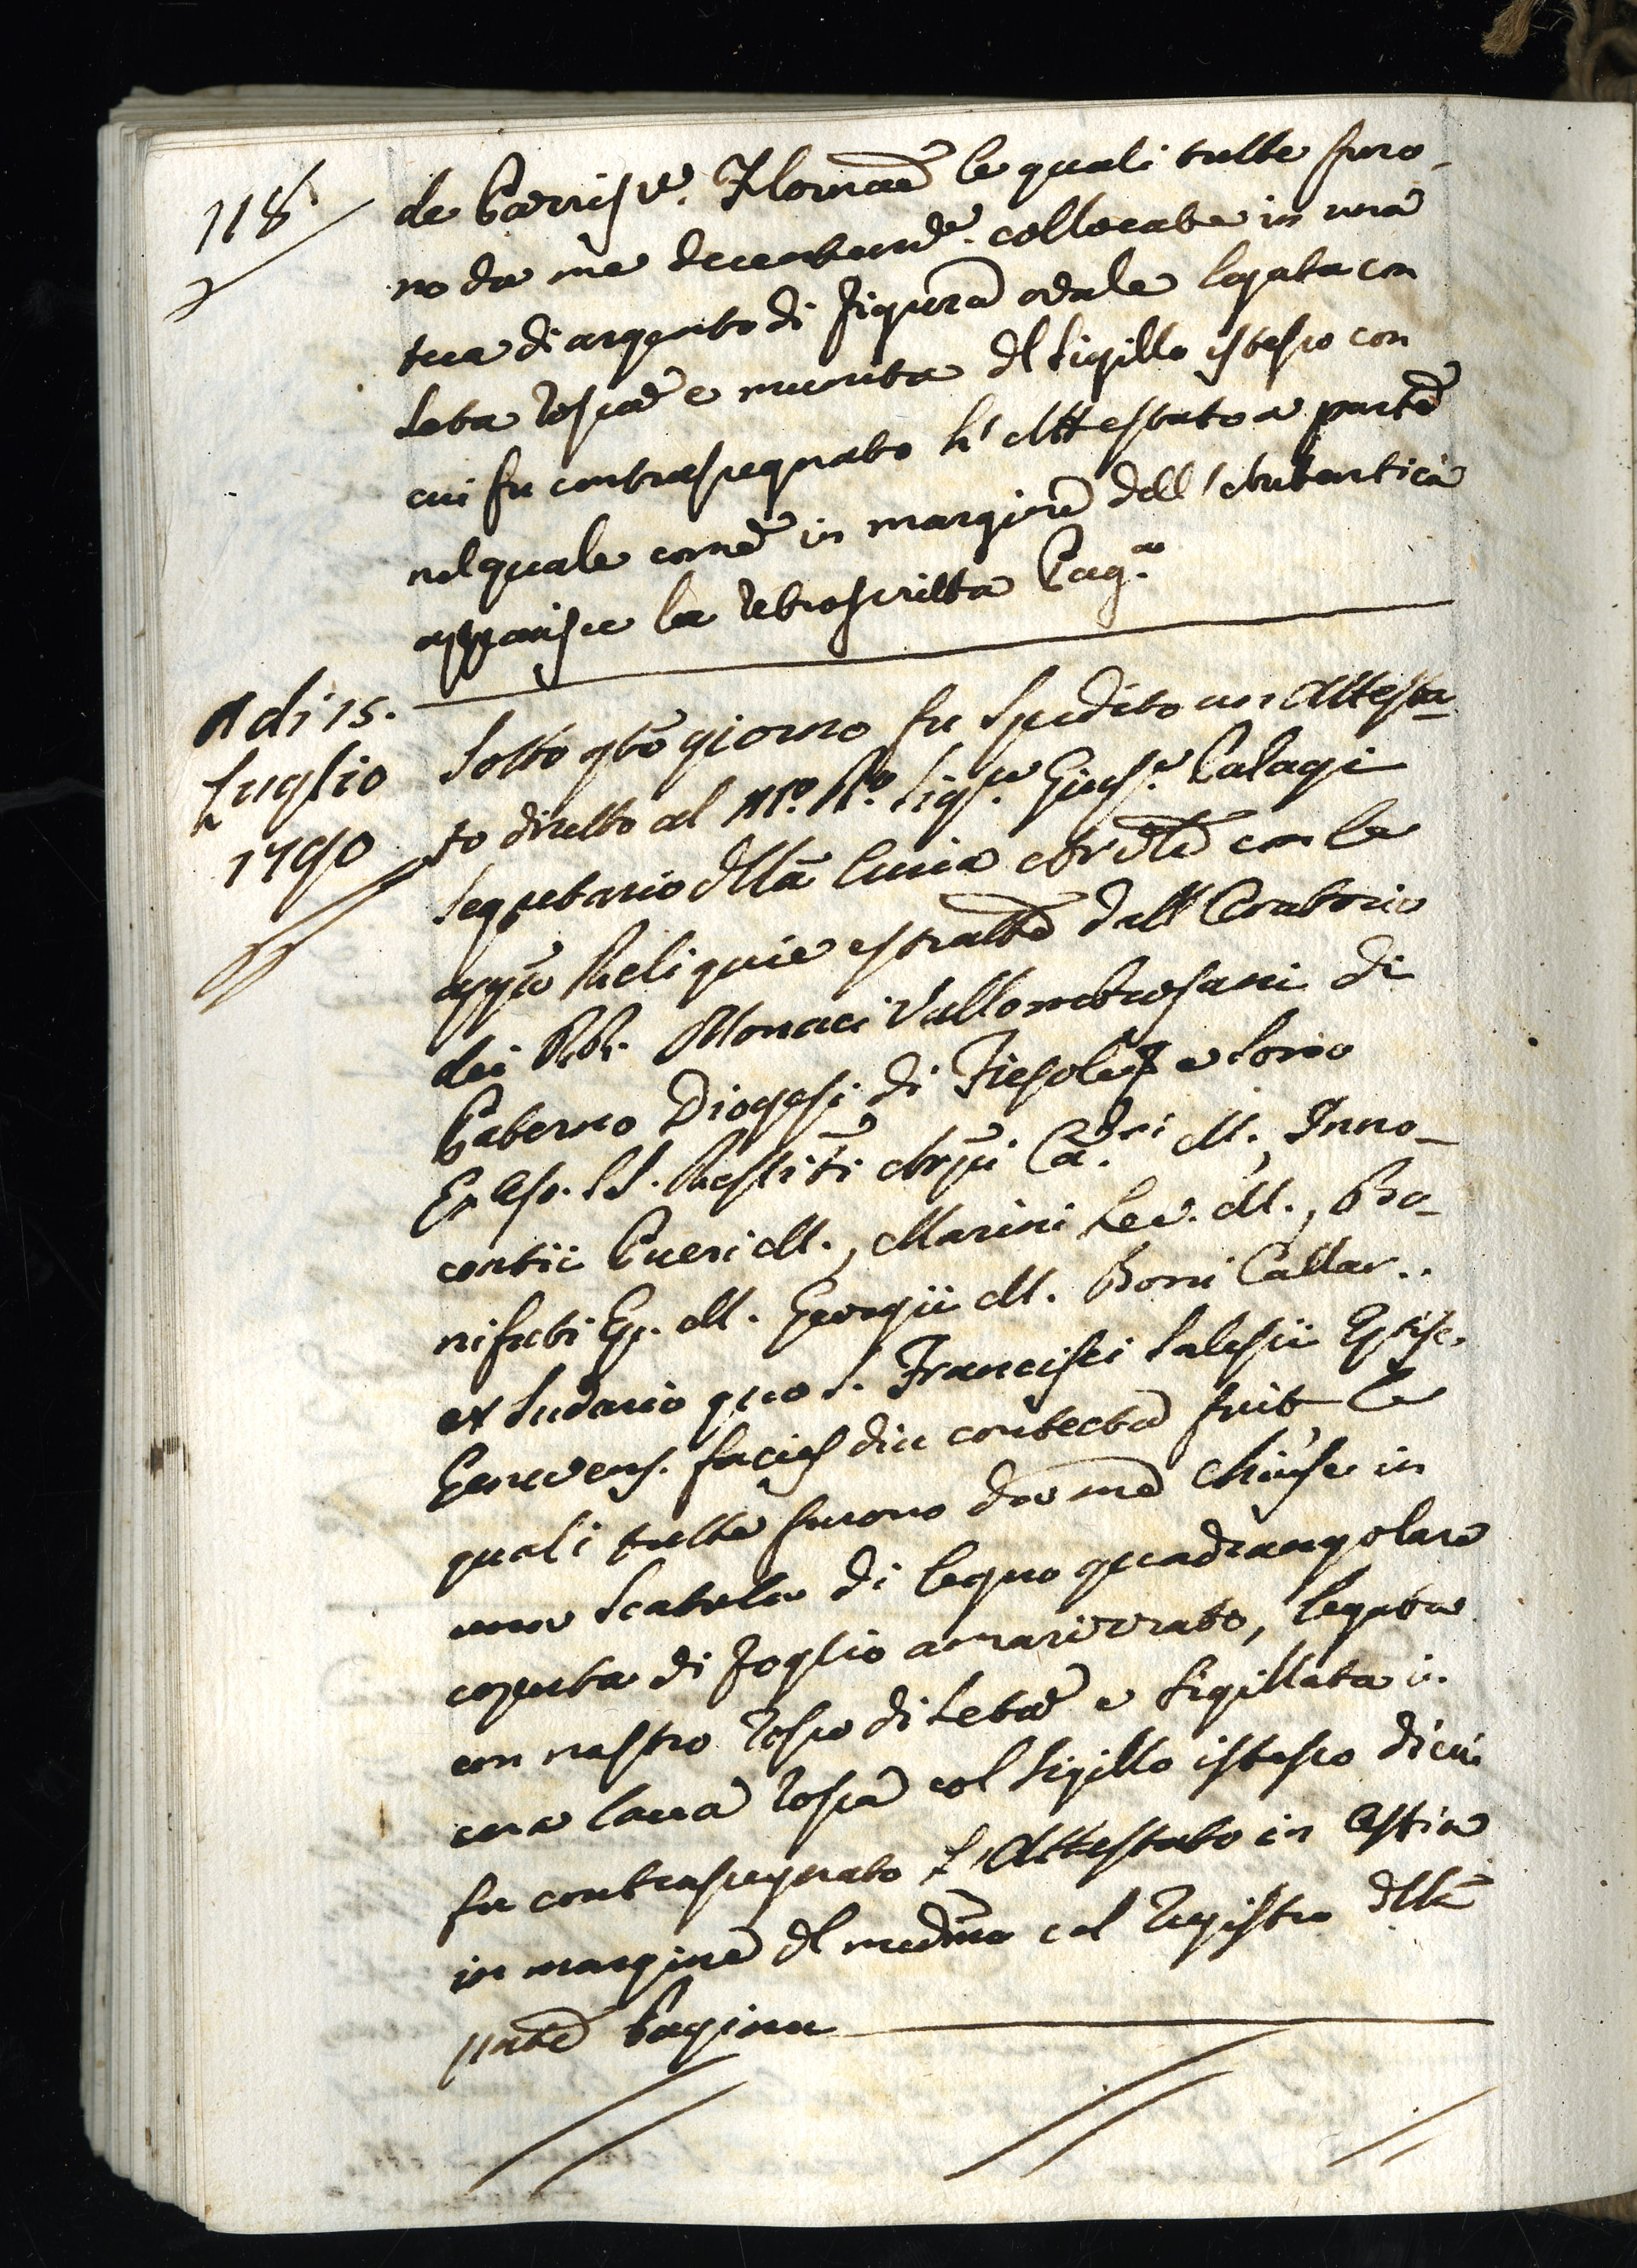 118
de Parrisve. Flornae le quali tutte furo-
no da me decentemde. collocate in una
teca di argento di figura ovale legata con
seta rossa e munita dl sigillo istesso con
cui fu contrassegnato l'Attestato a parte
nel quale come in margine dell'Autentica
apparisce la retroscritta Pag.a
A di 15.
Luglio
1790
Sotto qto giorno fu spedito un Attesta-
to diretto al M.o R.o Sigre. Giuse. Palagi
Segretario dlla Curia Arvile con le
appo Reliquie estratte dall Oratorio
dei RR. Monaci Vallombrosani di
Paterno Diogesi di Fiesole e sono
Ex Oss. SS. Restiti M., Inno-
centii Pueri M., Marini Lev. M., Bo-
nifati Ep. M. Georgii M. Boni Callar..
ex Sudario quo S. Francisci Salesii Episc.
Genevens. facies diu contecta fuit Le
quali tutte furono da me chiuse in
una Scatola di legno quadrangolare
coperta di foglio amarizzato, legata
con nastro rosso di seta e sigillata in
cera lacca rossa col sigillo istesso di cui
fu contrassegnato l'Attestato in Ostia
in margine dl medmo col Registro dlla
pnte Pagina